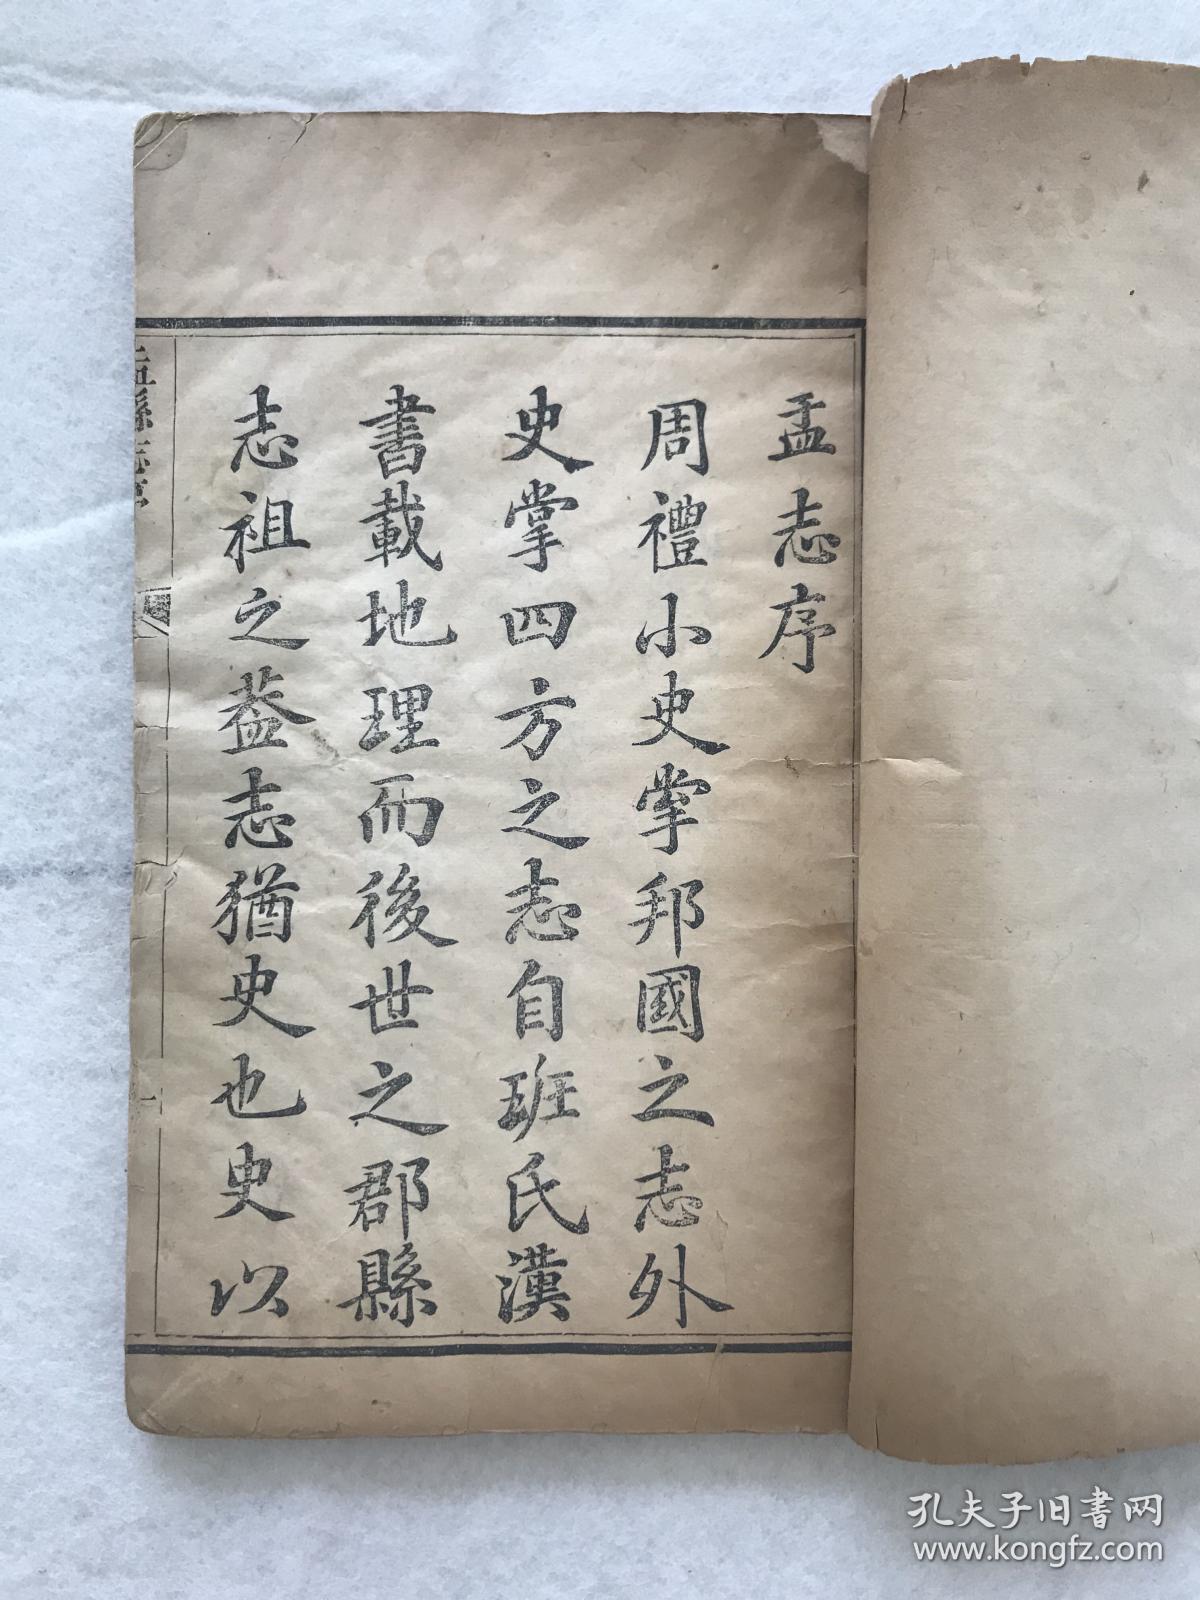 盂志序
周禮小史掌邦國之志外
史掌四方之志自班氏漢
書載地理而後世之郡縣
志祖之葢志猶史也史以
盂縣志序
一
孔夫子旧书网
www.kongfz.com